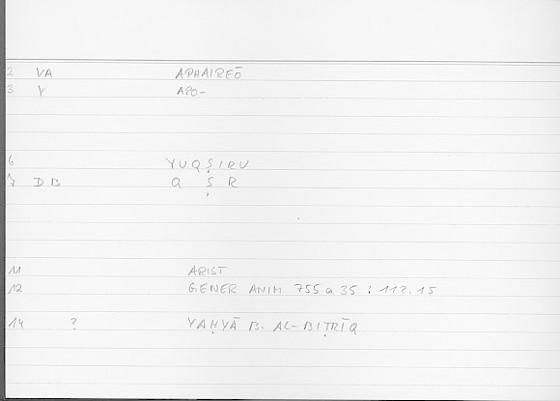 2 VA APHAIREŌ
3 V APO-
6 YUQṢIRU
7 DB Q Ṣ R
11 ARIST
12 GENER ANIM 755 a 35 : 112.15
14 ? YAḤYĀ B. AL-BIṬRĪQ